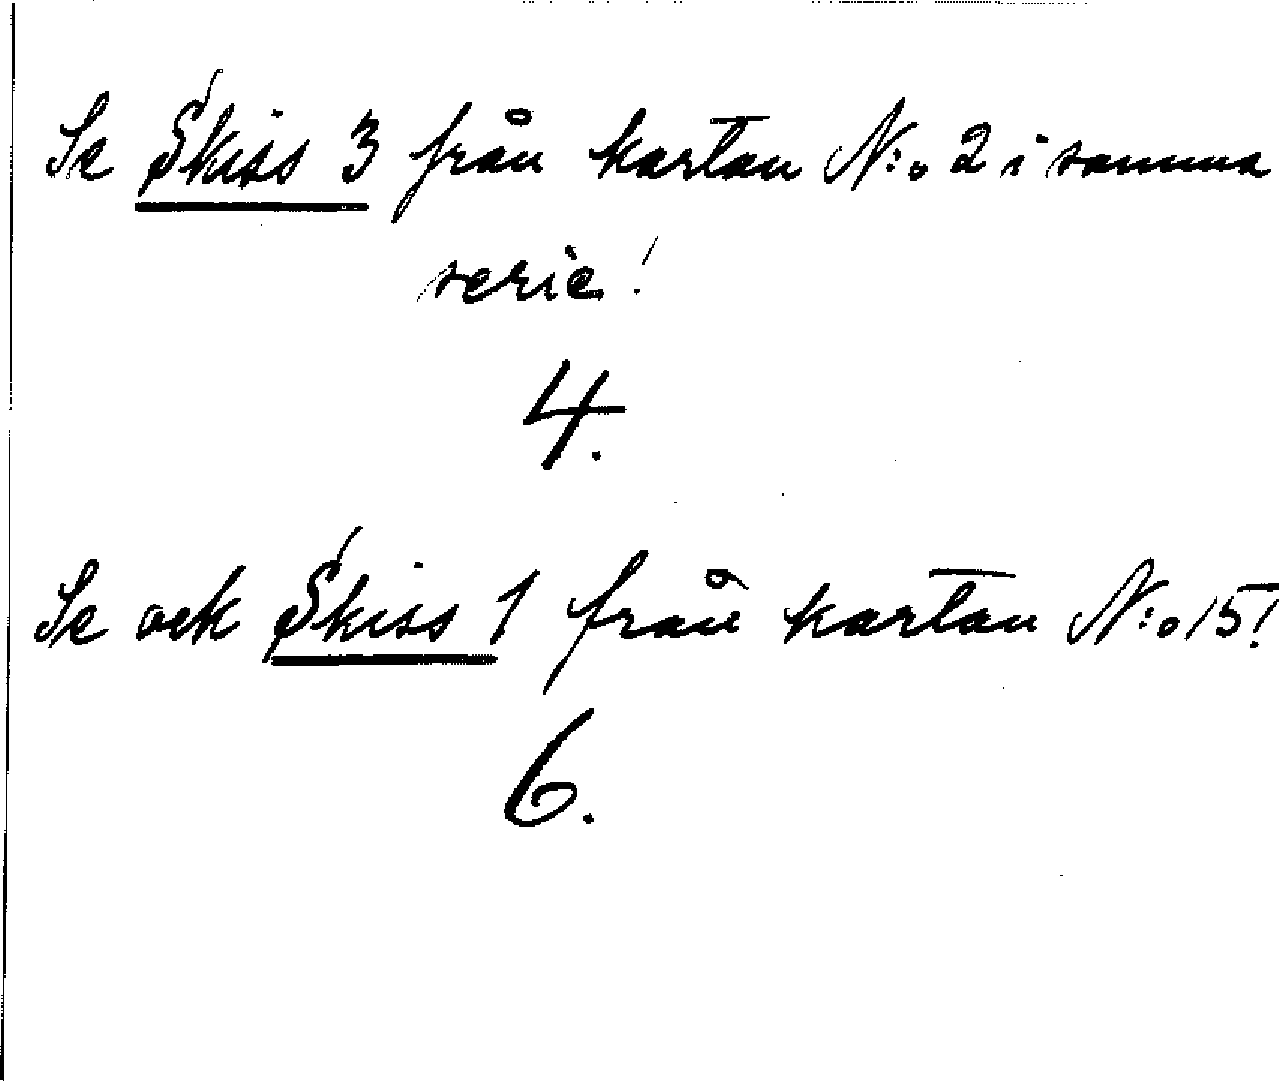 Se Skiss 3 från kartan N:o 2 i samma
serie!
4.
Se ock Skiss 1 från kartan N:o 15!
6.